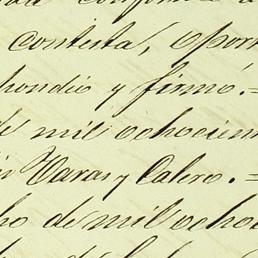 conforme a
contesta, opor
pondió y firmó.=
de mil ochocien
Varas y Calero.=
ho de mil ocho